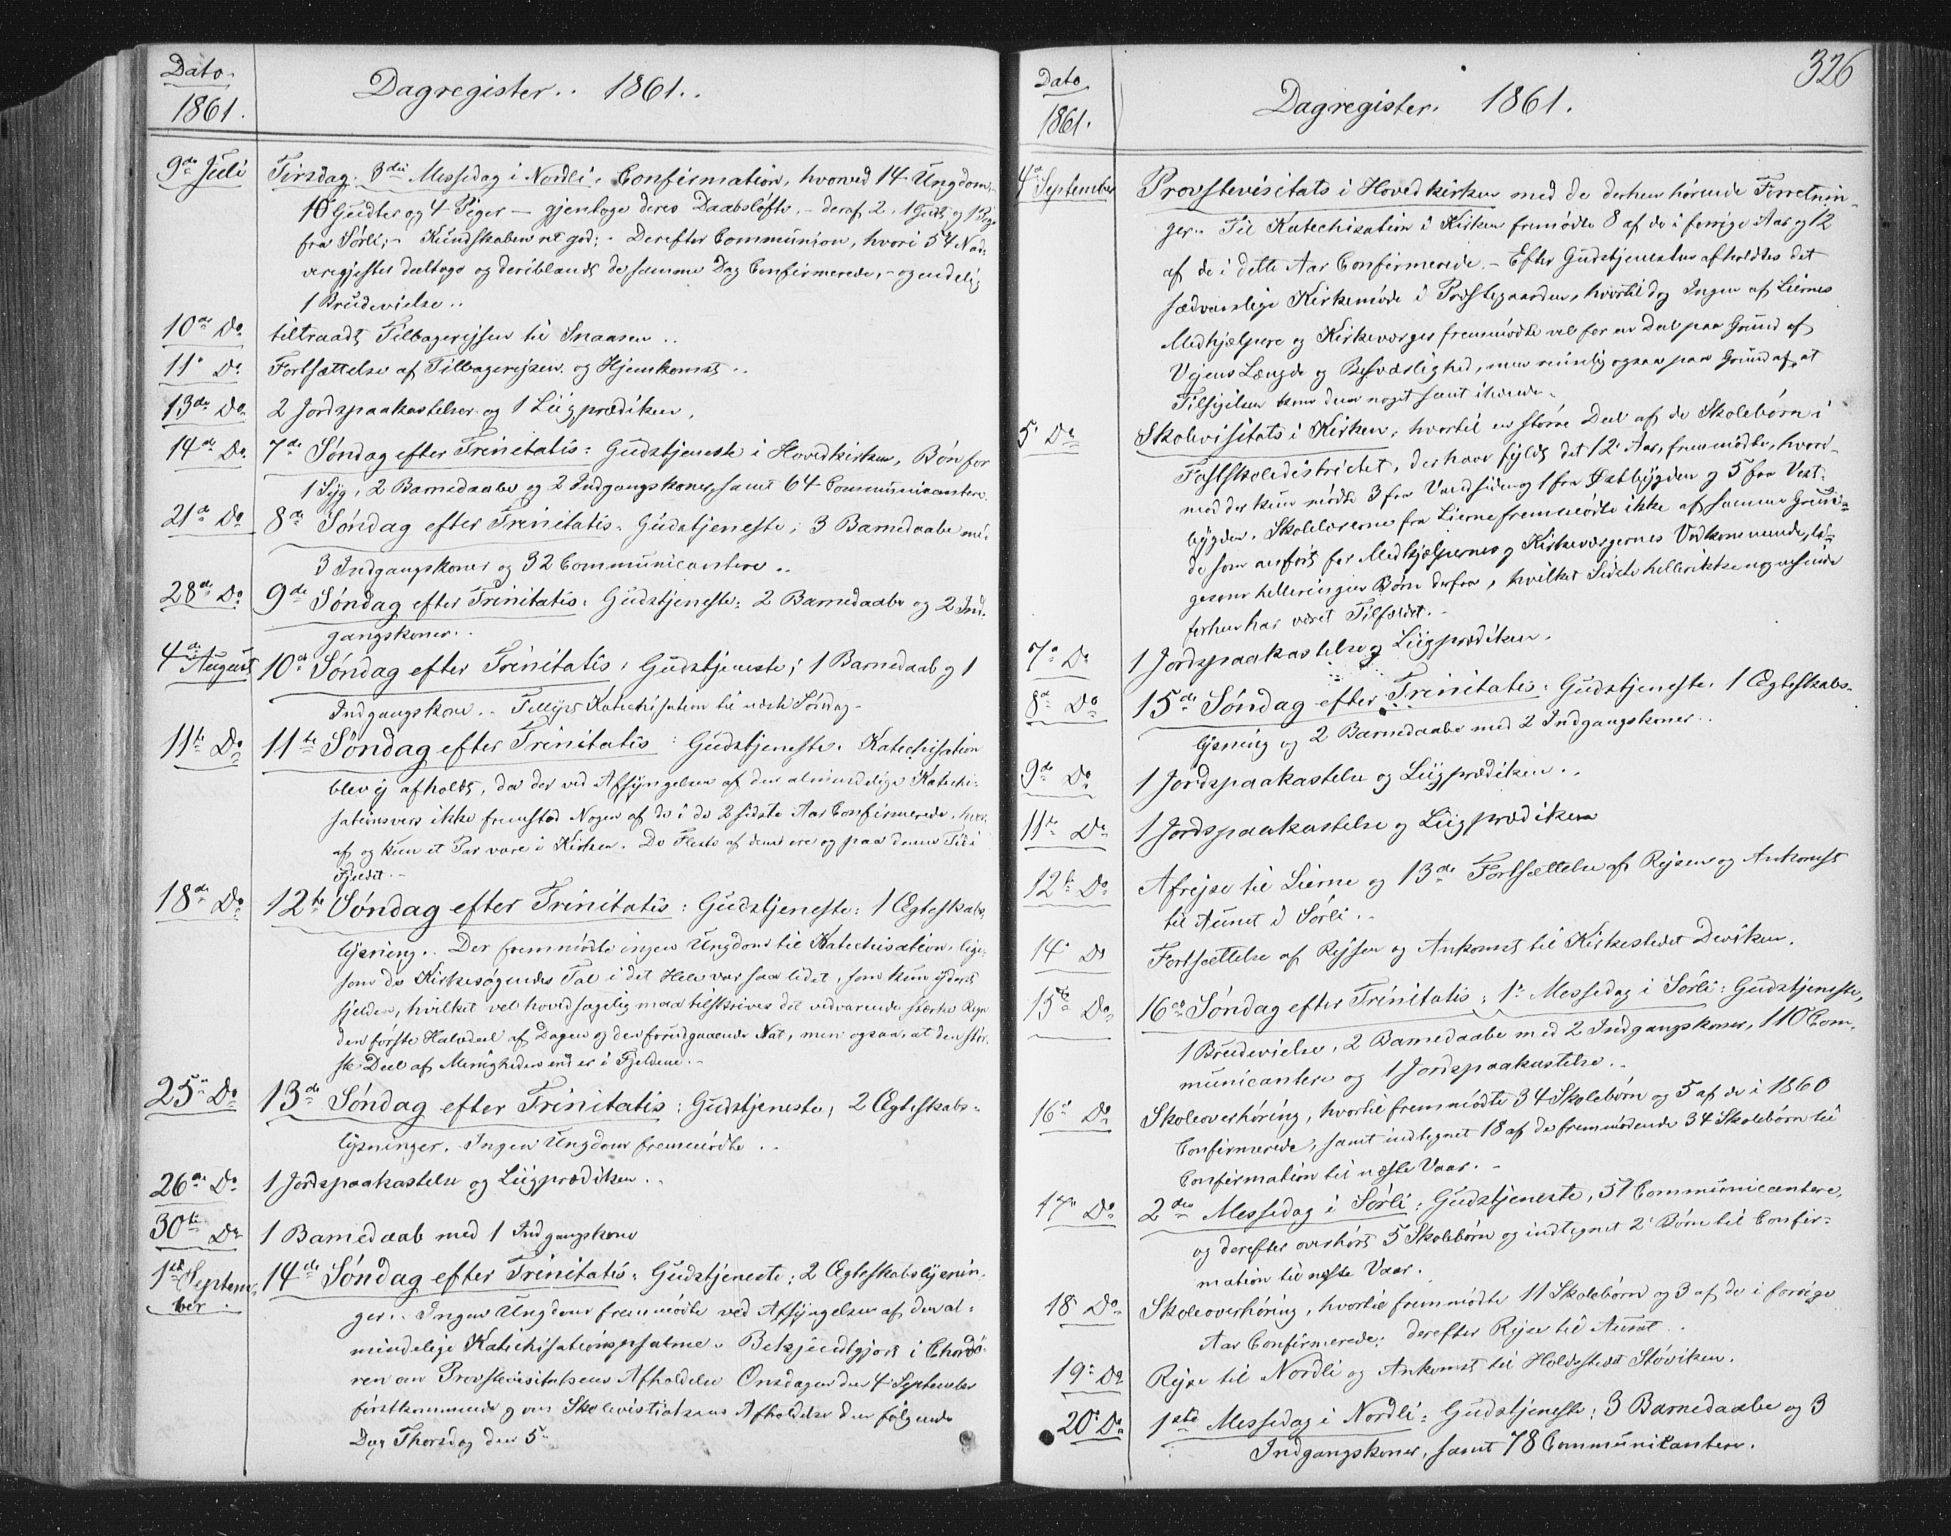 Dato
1861.
Dagregister.. 1861..
9de Juli Tirsdag. 3die Messedag i Nordli, Confirmation, hvorved 14 Ungdom,
10 Gudter og 4 Piger — gjentoge deres Daabsløfte, — deraf 2, 1 Gudt og 1 Pige
fra Sørli; - Kundskaben ret god; - Derefter Communion, hvori 54 Nad-
veregjester deeltoge og deriblandt de samme Dag Confirmerede, - og endelig
1 Brudevielse..
10de Do tiltraadt Tilbagereisen til Snaasen..
11te Do Fortsættelse af Tilbagerejsen og Hjemkomst..
13de Do 2 Jordspaakastelser og 1 Liigprædiken.
14de Do 7de Søndag efter Trinitatis: Gudstjeneste i Hovedkirken, Bøn for
1 Syg, 2 Barnedaabe og 2 Indgangskoner, samt 64 Communicantere
21de Do 8de Søndag efter Trinitatis. Gudstjeneste; 3 Barnedaabe med
3 Indgangskoner og 32 Communicantere..
28de Do 9de Søndag efter Trinitatis: Gudstjeneste: 2 Barnedaabe og 2 Ind-
gangskoner..
4de August 10de Søndag efter Trinitatis: Gudstjeneste; 1 Barnedaab og 1
Indgangskone.. Tillyst Katechisation til næste Søndag-
11te Do 11te Søndag efter Trinitatis: Gudstjeneste. Katechisation
blev ej afholdt, da der ved Afsyngelsen af den almindelige Katechi-
sationsvers ikke fremstod Nogen af de i de 2 sidste Aar Confirmerede, hvor-
af og kun et Par vare i Kirken. De Fleste af dem ere og paa denne Tid i
Fjeldet.-
18de Do 12te Søndag efter Trinitatis: Gudstjeneste: 1 Ægteskabs-
lysning.. Der fremmødte ingen Ungdom til Katechisation, lige-
som de Kirkesøgendes Tal i det Hele var saa lidet, som kun yderst
sjelden, hvilket vel hovedsagelig maa tilskrives det vedvarende stærke Regn
den første Halvdeel af Dagen og den foregaaende Nat, men ogsaa, at den stør-
ste Deel af Menigheden end er i Fjeldene.-
25de Do 13de Søndag efter Trinitatis: Gudstjeneste; 2 Ægteskabs-
lysninger. Ingen Ungdom fremmødte..
26de Do 1 Jordspaakastelse og Liigprædiken..
30te Do 1 Barnedaab med 1 Indgangskone
1ste Septem-
ber. 14de Søndag efter Trinitatis: Gudstjeneste; 2 Ægteskabslysnin-
ger.. Ingen Ungdom fremmødte ved Afsyngelsen af den al-
mindelige Katechisationspsalme. Bekjendtgjort i Chordø-
ren om Provstevisitatsens Afholdelse Onsdagen den 4de September
førstkommende og om Skolevisitatsens Afholdelse den følgende
Dag Thorsdag den 5te
326
Dato
1861.
Dagregister. 1861.
4de September Provstevisitats i Hovedkirken med de derhen hørende Forretnin-
ger.. Til Katechisation i Kirken fremødte 8 af de i forrige Aar og 12
af de i dette Aar Confirmerede. - Efter Gudstjenesten afholdtes det
sædvanlige Kirkemøde i Præstegaarden, hvortil dog Ingen af Liernes
Medhjælpere og Kirkeværger fremmødte vel for en Deel paa Grund af
Vejens Længde og Besværlighed, men rimelig ogsaa paa Grund af, at
Tilsigelsen kom dem noget seent ihænde.
5te Do Skolevisitats i Kirken, hvortil en større Deel af de Skolebørn i
Fastskoledistrictet, der have fyldt det 12te Aar, fremmødte, hvori-
mod der kun mødte 3 fra Vandsiden og 1 fra Østbygden og 5 fra Vest-
bygden. Skolelærerne fra Lierne fremmødte ikke af samme Grun-
de som anført for Medhjælpernes og Kirkeværgernes Vedkommende, li-
gesom heller ingen Børn derfra, hvilket Sidste heller ikke nogensinde
forhen har været Tilfældet.
7de Do 1 Jordspaakastelse og Liigprædiken.
8de Do 15de Søndag efter Trinitatis: Gudstjeneste. 1 Ægteskabs-
lysning og 2 Barnedaabe med 2 Indgangskoner..
9de Do 1 Jordspaakastelse og Liigprædiken..
11te Do 1 Jordspaakastelse og Liigprædiken
12te Do Afrejse til Lierne og 13de Fortsættelse af Rejsen og Ankomst
til Aunet i Sørli..
14de Do Fortsættelse af Rejsen og Ankomst til Kirkestedet Deviken.
15de Do 16de Søndag efter Trinitatis; 1ste Messedag i Sørli: Gudstjeneste,
1 Brudevielse, 2 Barnedaabe med 2 Indgangskoner, 110 Com-
municantere og 1 Jordspaakastelse..
16de Do Skoleoverhøring, hvortil fremmødte 34 Skolebørn og 5 af de i 1860
Confirmerede, samt indtegnet 18 af de fremmødende 34 Skolebørn til
Confirmation til næste Vaar.-
17de Do 2den Messedag i Sørli: Gudstjeneste, 51 Communicantere,
og derefter overhørt 5 Skolebørn og indtegnet 2 Børn til Confir-
mation til næste Vaar.
18de Do Skoleoverhøring, hvortil fremmødte 11 Skolebørn og 3 af de i forrige
Aar Confirmerede; derefter Rejse til Aunet..
19de Do Rejse til Nordli og Ankomst til Holdstedet Støviken.
20de Do 1ste Messedag i Nordli: Gudstjeneste; 3 Barnedaabe og 3
Indgangskoner, samt 78 Communicantere.